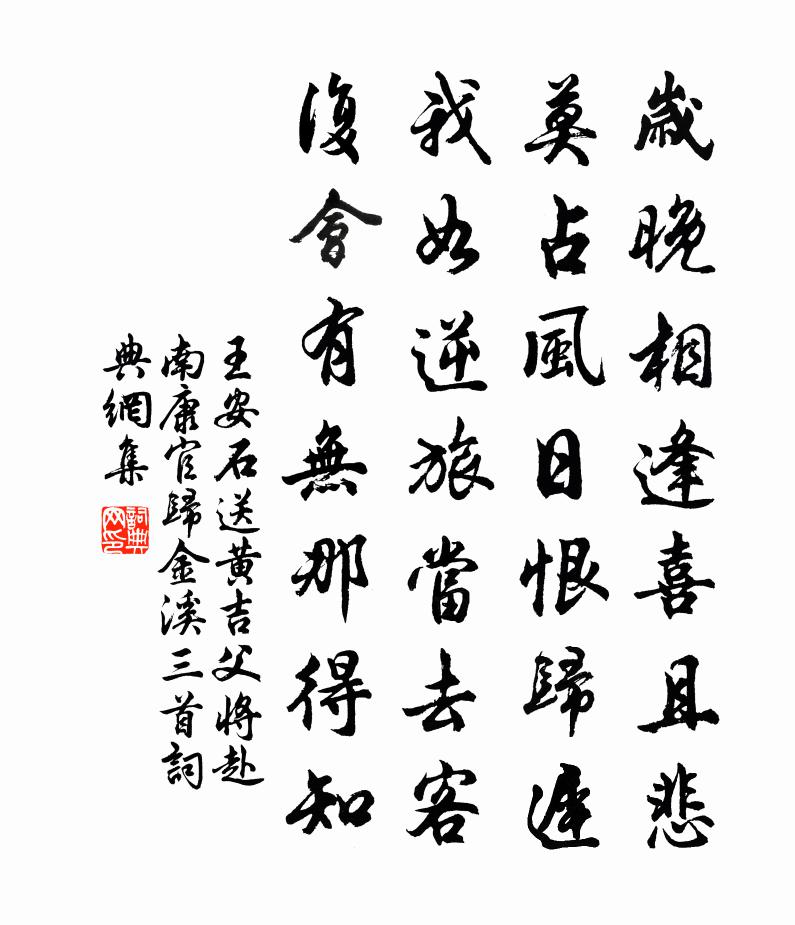 歲晚相逢喜且悲
莫占風日恨歸遲
我如逆旅當去客
復會有無那得知
王安石送黃吉父將赴
南康官歸金溪三首詞
典網集
詞典
网印